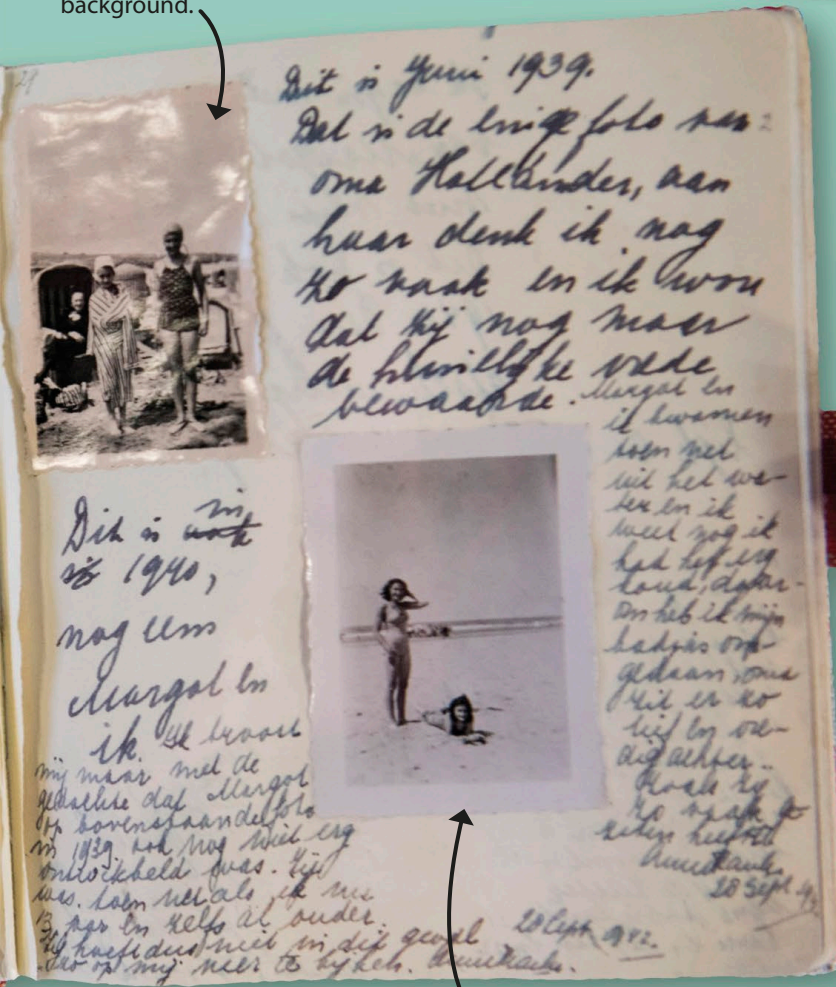 background.
29
Dit is Juni 1939.
Dat is de enige foto van
oma Holländer, aan
haar denk ik nog
zo vaak en ik wou
dat zij nog maar
de huiselijke vrede
bewaarde. Margot en
ik kwamen
toen net
uit het wa-
ter en ik
weet nog ik
had het erg
koud, daar-
om heb ik mijn
badjas om-
gedaan, oma
zit er zo
lief en vre-
dig achter.
Zoals zij
zo vaak
zitten
Anne Frank.
28 Sept. 1942
Dit is in
1940,
nog eens
Margot en
ik. Ik troost
mij maar met de
gedachte dat Margot
op bovenstaande foto
in 1939 ook nog niet erg
ontwikkeld was. Zij
was toen net als ik nu
13 jaar en zelfs al ouder.
Zij hoeft dus niet in dit geval
zo op mij neer te kijken. Anne Frank.
28 Sept. 1942.